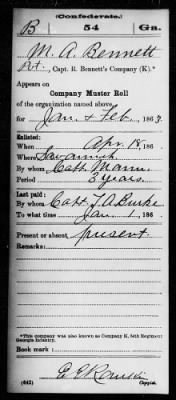 (Confederate.)
B 54 Ga.
M. A. Bennett
Pvt., Capt. R. Bennett's Company (K).*
Appears on
Company Muster Roll
of the organization named above,
for Jan & Feb, 1863.
Enlisted:
When Apr 18, 186
Where Savannah
By whom Capt. Mann
Period 3 years
Last paid:
By whom Capt. J. A. Burke
To what time Jan 1, 186
Present or absent present
Remarks:
*This company was also known as Company K, 54th Regiment
Georgia Infantry.
Book mark:
(642)
Copyist.